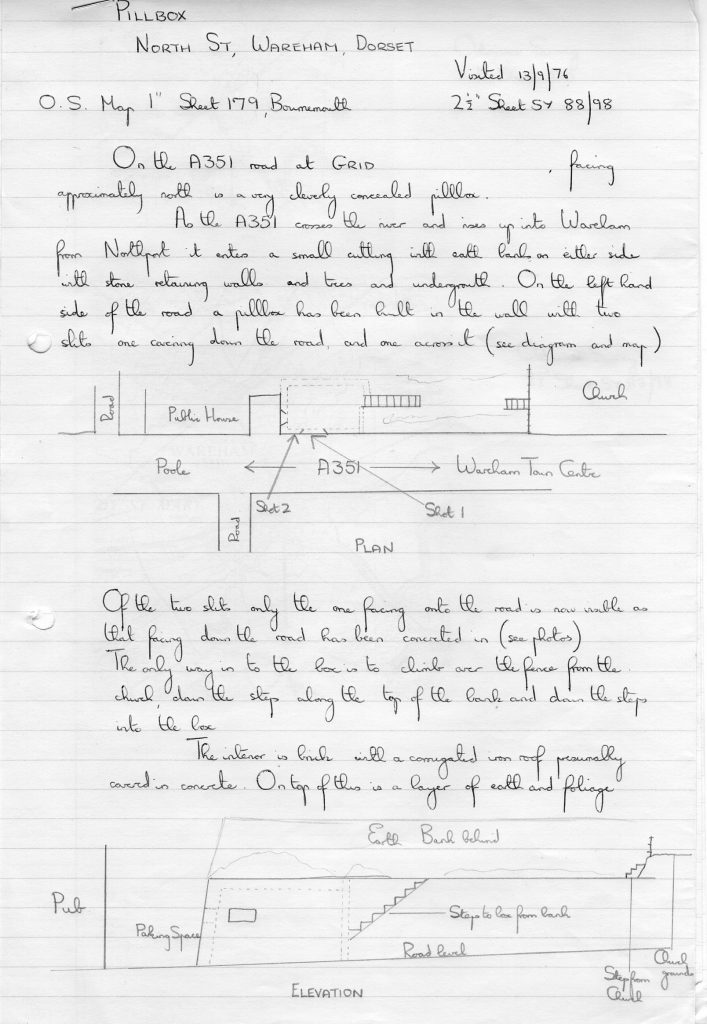 PILLBOX
NORTH ST, WAREHAM, DORSET
Visited 13/9/76
O.S. Map 1" Sheet 179, Bournemouth 2½" Sheet SY 88/98
On the A351 road at GRID , facing
approximately north is a very cleverly concealed pillbox.
As the A351 crosses the river and rises up into Wareham
from Northport it enters a small cutting with earth banks on either side
with stone retaining walls and trees and undergrowth. On the left hand
side of the road a pillbox has been built in the wall with two
slits one covering down the road, and one across it (see diagram and map)
Road
Public House
Church
Poole
A351
Wareham Town Centre
Slot 2
Slot 1
Road
PLAN
Of the two slits only the one facing onto the road is now visible as
that facing down the road has been concreted in (see photos)
The only way in to the box is to climb over the fence from the
church, down the steps along the top of the bank and down the steps
into the box
The interior is brick with a corrugated iron roof presumably
covered in concrete. On top of this is a layer of earth and foliage
Earth Bank behind
Pub
Parking Space
Steps to box from bank
Road level
Steps from
Church
Church
grounds
ELEVATION